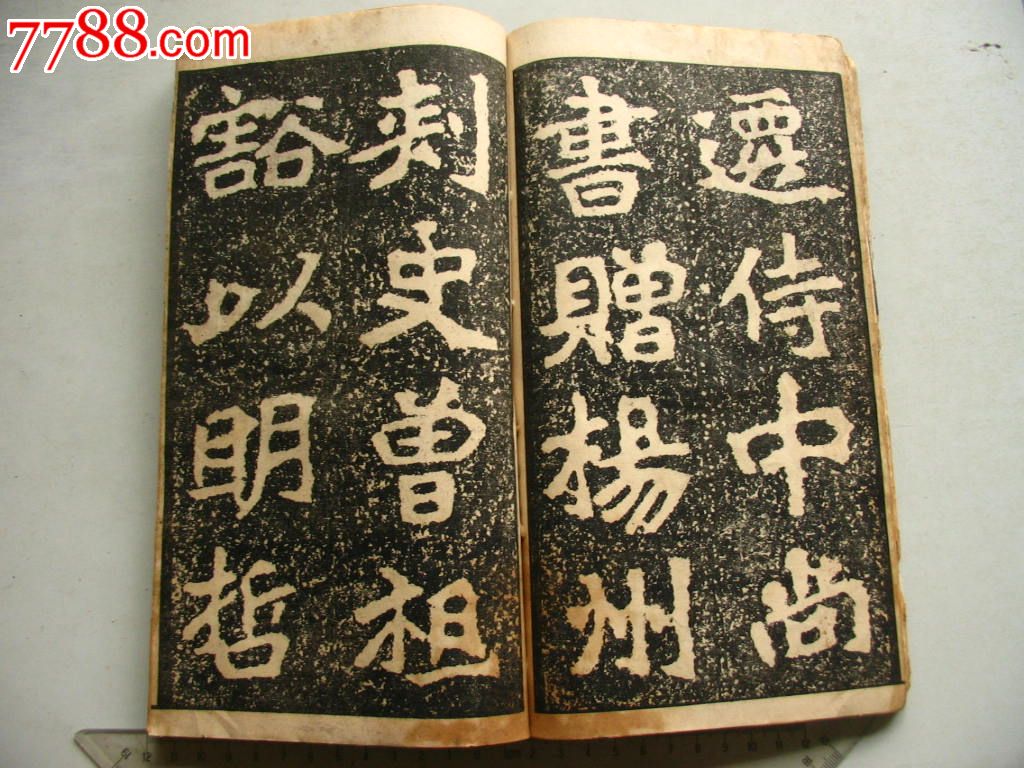 7788.com收藏
遷侍中尚
書贈楊州
刾史曾祖
豁以明哲